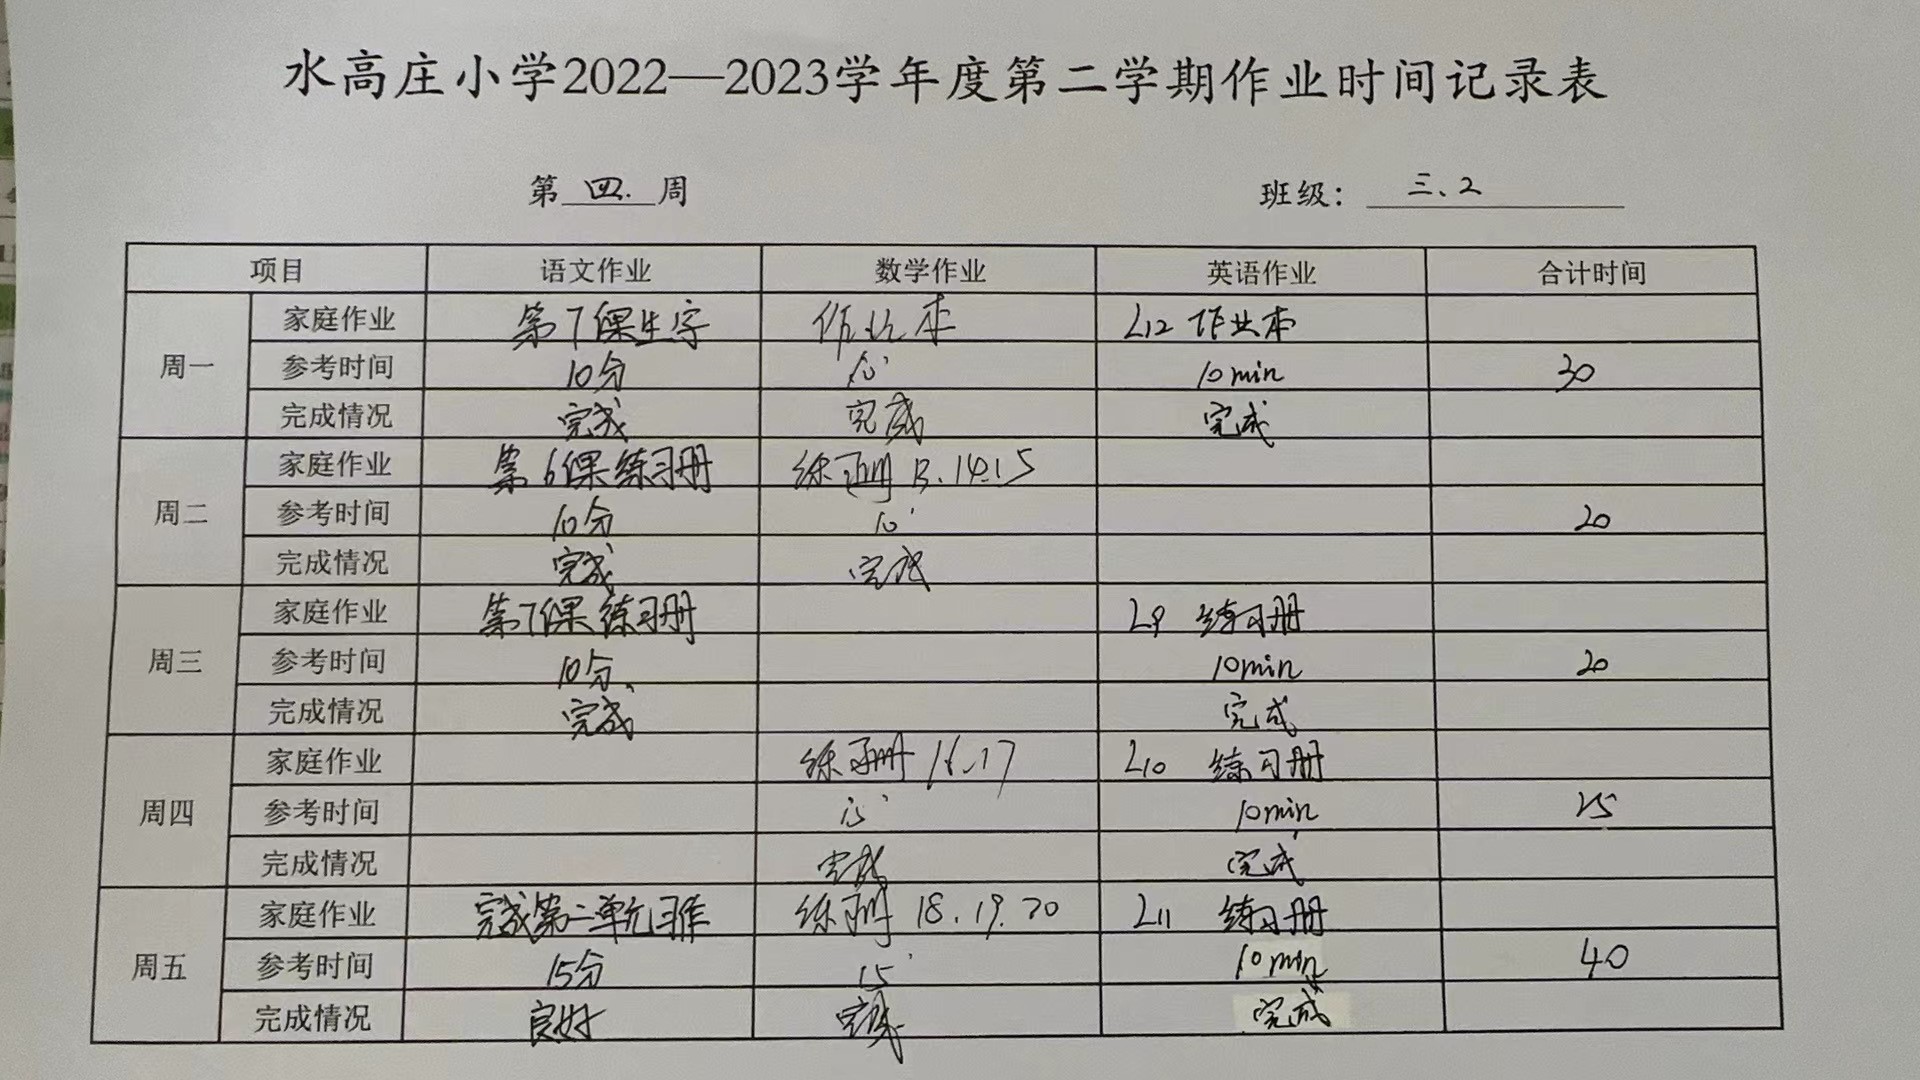 水高庄小学2022—2023学年度第二学期作业时间记录表
第 四. 周 班级： 三、2
项目 语文作业 数学作业 英语作业 合计时间
周一 家庭作业 第7课生字 作业本 L12 作业本
参考时间 10分 10' 10min 30
完成情况 完成 完成 完成
周二 家庭作业 第6课练习册 练习册 13、14.15
参考时间 10分 10' 20
完成情况 完成 完成
周三 家庭作业 第7课练习册 L9 练习册
参考时间 10分、 10min 20
完成情况 完成 完成
周四 家庭作业 练习册 16.17 L10 练习册
参考时间 15' 10min 25
完成情况 完成 完成
周五 家庭作业 完成第二单元习作 练习册 18.19.20 L11 练习册
参考时间 15分 15' 10min 40
完成情况 良好 完成 完成